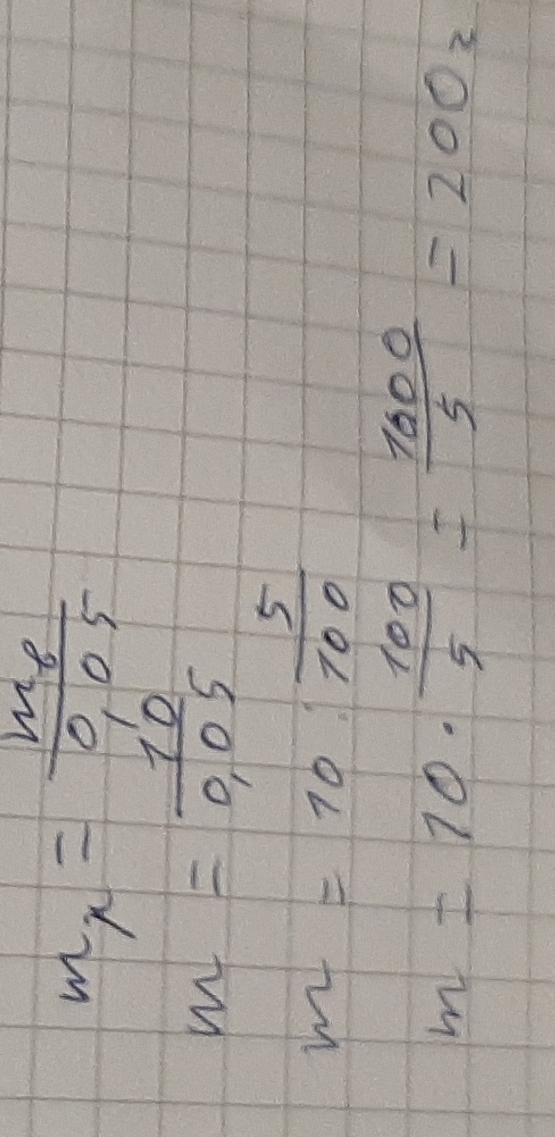 mр = mв / 0,05
m = 10 / 0,05
m = 10 : 5/100
m = 10 · 100/5 = 1000/5 = 200г